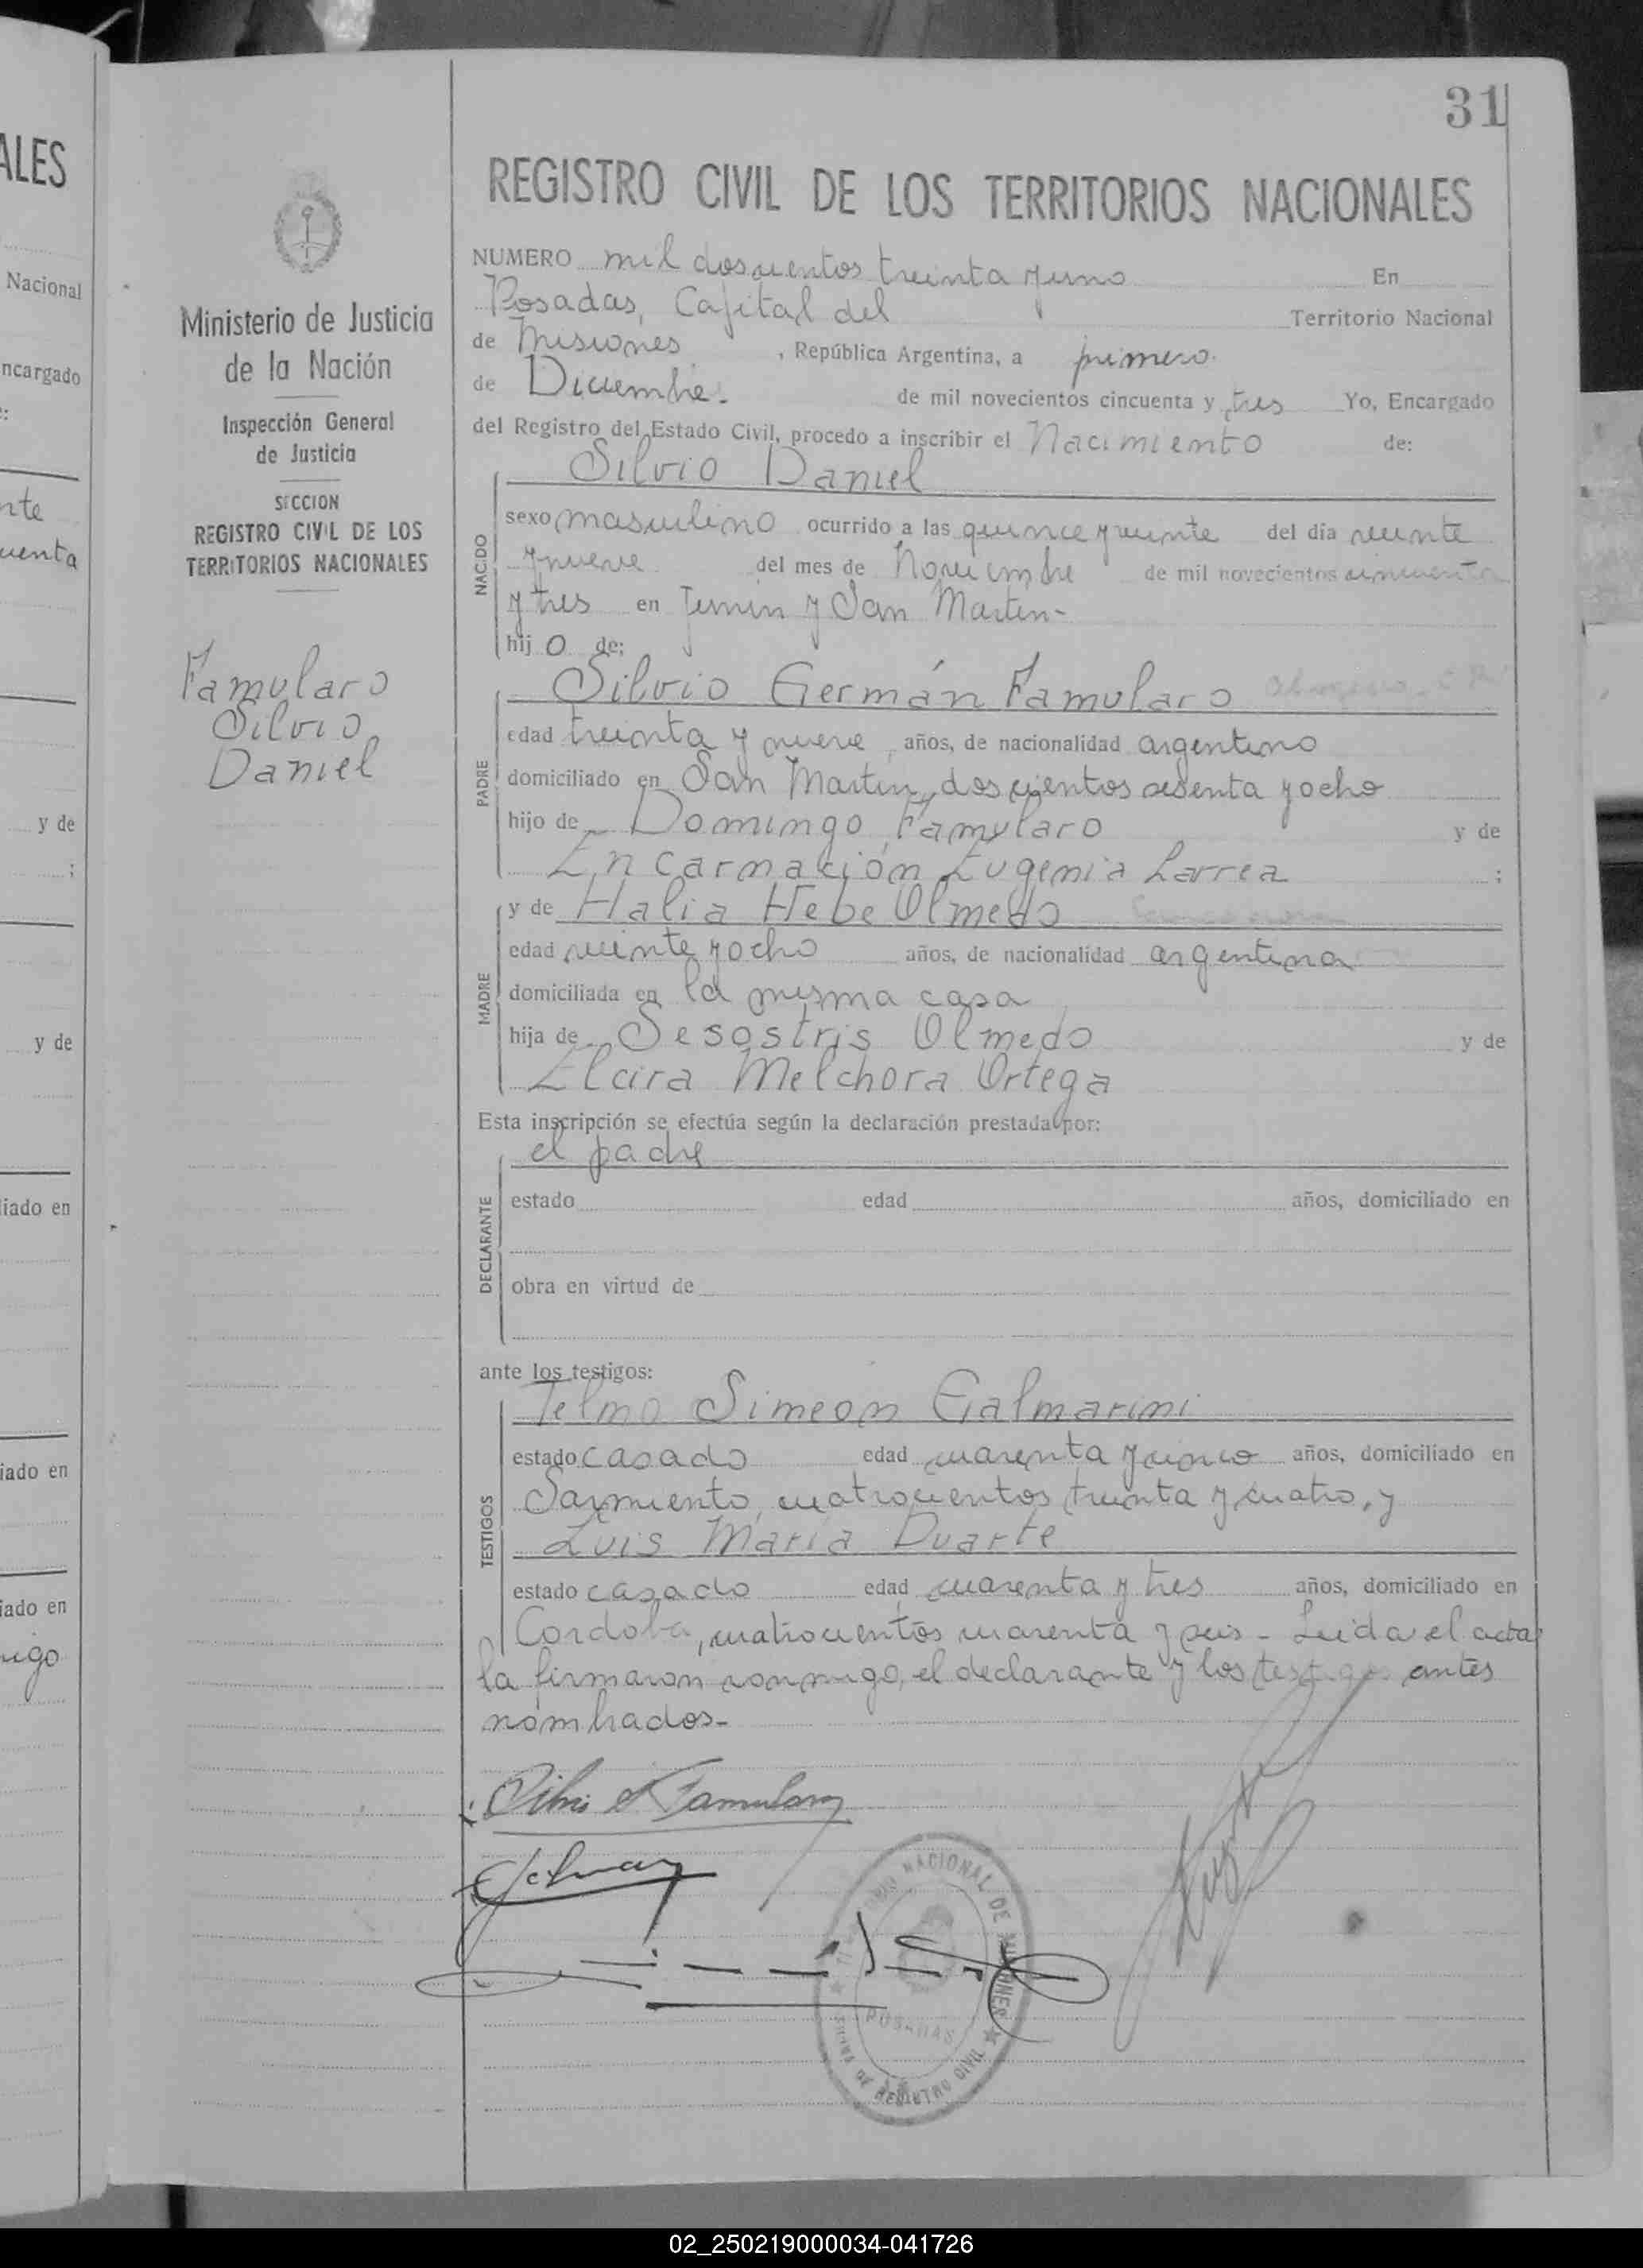 31
REGISTRO CIVIL DE LOS TERRITORIOS NACIONALES
ALES
Nacional
ncargado
nte
uenta
y de
y de
iado en
iado en
iado en
migo
Ministerio de Justicia
de la Nación
Inspección General
de Justicia
SECCION
REGISTRO CIVIL DE LOS
TERRITORIOS NACIONALES
Famularo
Silvio
Daniel
NUMERO mil doscientos treinta y uno En
Posadas, Capital del Territorio Nacional
de Misiones, República Argentina, a primero
de Diciembre. de mil novecientos cincuenta y tres Yo, Encargado
del Registro del Estado Civil, procedo a inscribir el Nacimiento de:
NACIDO
Silvio Daniel
sexo masculino ocurrido a las quince y veinte del día veinte
y nueve del mes de Noviembre de mil novecientos cincuenta
y tres en Junin y San Martin-
hijo de:
PADRE
Silvio Germán Famularo
edad treinta y nueve años, de nacionalidad argentino
domiciliado en San Martin, doscientos sesenta y ocho
hijo de Domingo Famularo y de
Encarnación Eugenia Larrea ;
MADRE
y de Halia Hebe Olmedo
edad veinte y ocho años, de nacionalidad argentina
domiciliada en la misma casa
hija de Sesostris Olmedo y de
Elcira Melchora Ortega
Esta inscripción se efectúa según la declaración prestada por:
DECLARANTE
el padre
estado edad años, domiciliado en
obra en virtud de
ante los testigos:
TESTIGOS
Telmo Simeón Galmarini
estado casado edad cuarenta y cinco años, domiciliado en
Sarmiento, cuatrocientos treinta y cuatro, y
Luis María Duarte
estado casado edad cuarenta y tres años, domiciliado en
Cordoba, cuatrocientos cuarenta y seis - Leida el acta
la firmaron conmigo, el declarante y los testigos antes
nombrados-
Silvio G Famularo
NACIONAL DE MISIONES
POSADAS
REGISTRO CIVIL
02_250219000034-041726